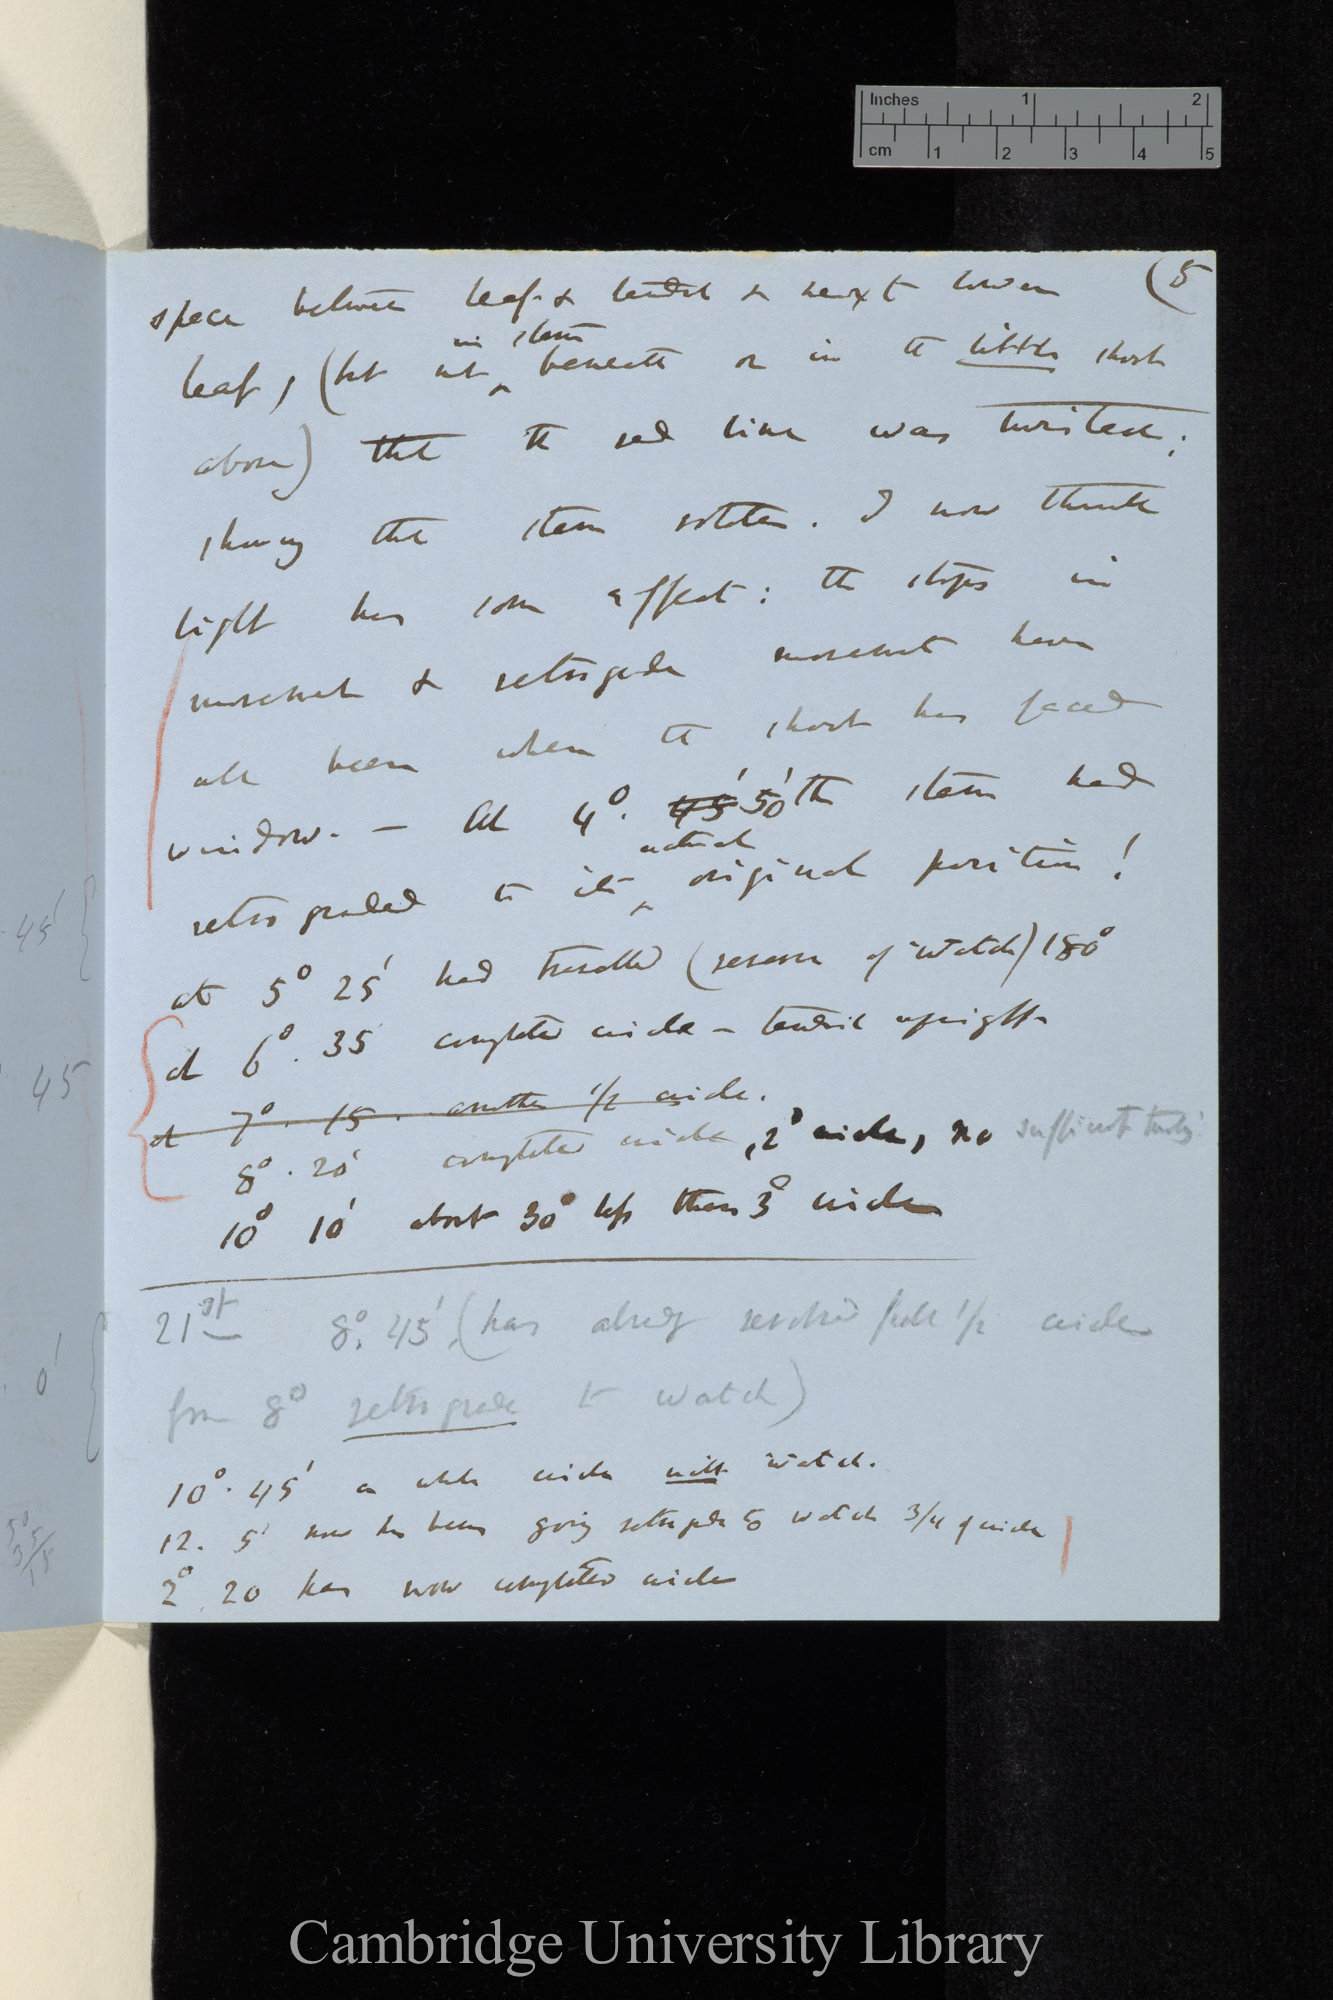 Inches 1 2
cm 1 2 3 4 5
(5
space between leaf & tendril & next lower
leaf, (but not ^ in stem beneath or in the little shoot
above) that the red line was twisted;
showing that stem rotates. I now think
light has some effect: the stops in
movement & retrograde movement have
all been when the shoot has faced
window. — At 4°. 45' 50' the stem had
retrograded to its ^ actual original position!
at 5° 25' had travelled (reverse of watch) 180°
at 6°. 35' completed circle — tendril upright
at 7°. 15. another 1/2 circle.
8°. 20' completed circle, 2° circle, no sufficient
10° 10' about 30° less than 3° circle
21st 8°. 45'. (has already revolved 1/2 circle
from 8° retrograde to watch)
10°. 45' a whole circle with watch.
12. 5' now has been going retrograde to watch 3/4 of circle
2°. 20 has now completed circle
45'
45
0'
Cambridge University Library